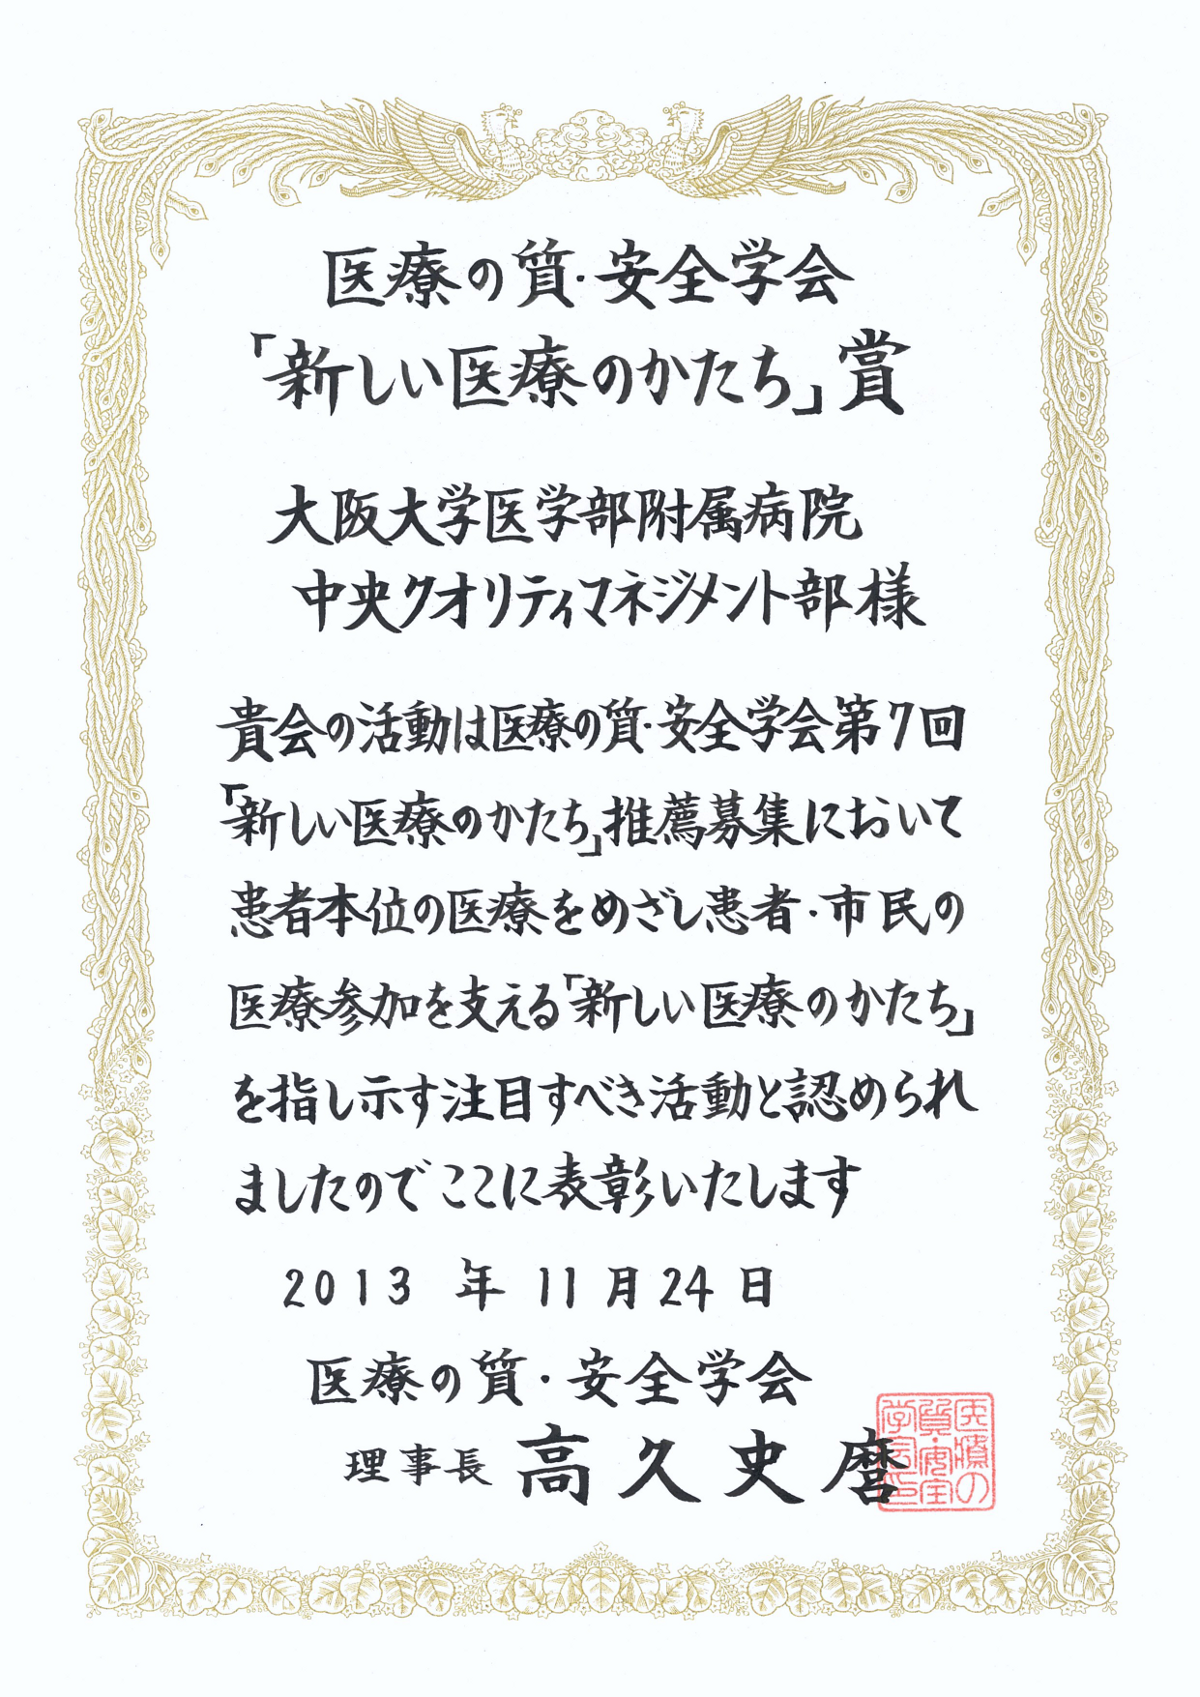 医療の質・安全学会
「新しい医療のかたち」賞
大阪大学医学部附属病院
中央クオリティマネジメント部様
貴会の活動は医療の質・安全学会第7回
「新しい医療のかたち」推薦募集において
患者本位の医療をめざし患者・市民の
医療参加を支える「新しい医療のかたち」
を指し示す注目すべき活動と認められ
ましたのでここに表彰いたします
2013年11月24日
医療の質・安全学会
理事長 高久史麿
医療の
質・安全
学会印